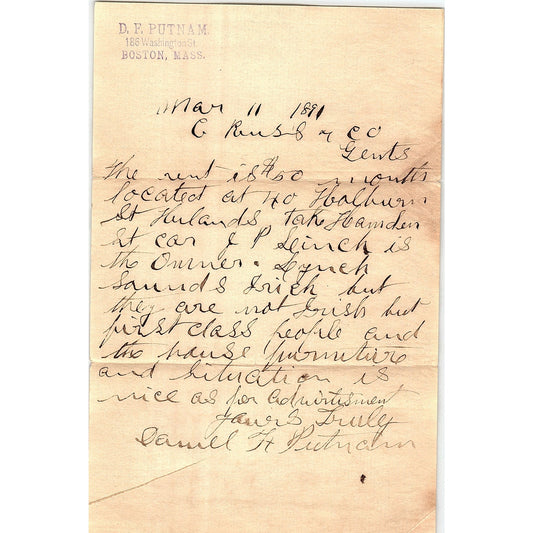 D. F. PUTNAM.
186 Washington St.
BOSTON, MASS.
Mar 11 1891
C Russ & CO
Gents
The rent is $60 month
located at 40 Holburn
St Hilands take Hamden
St car J P Leinch is
the Owner. Lynch
sounds Irich but
they are not Irish but
first class people and
the house furniture
and situation is
nice as per advirtisment
yours Truly
Daniel F Putnam